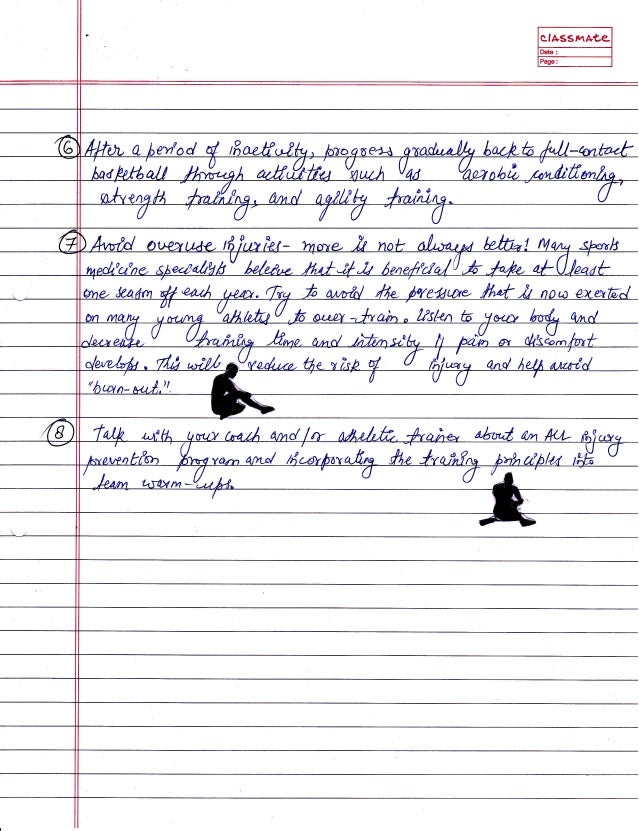 classmate
Date :
Page :
6 After a period of inactivity, progress gradually back to full-contact
basketball through activities such as aerobic conditioning,
strength training, and agility training.
7 Avoid overuse injuries - more is not always better! Many sports
medicine specialists beleive that it is beneficial to take at least
one season off each year. Try to avoid the pressure that is now exerted
on many young athletes to over-train. listen to your body and
decrease training time and intensity if pain or discomfort
develops. This will reduce the risk of injury and help avoid
"burn-out."
8 Talk with your coach and/or atheletic trainer about an ALL injury
prevention program and incorporating the training principles into
team warm-ups.